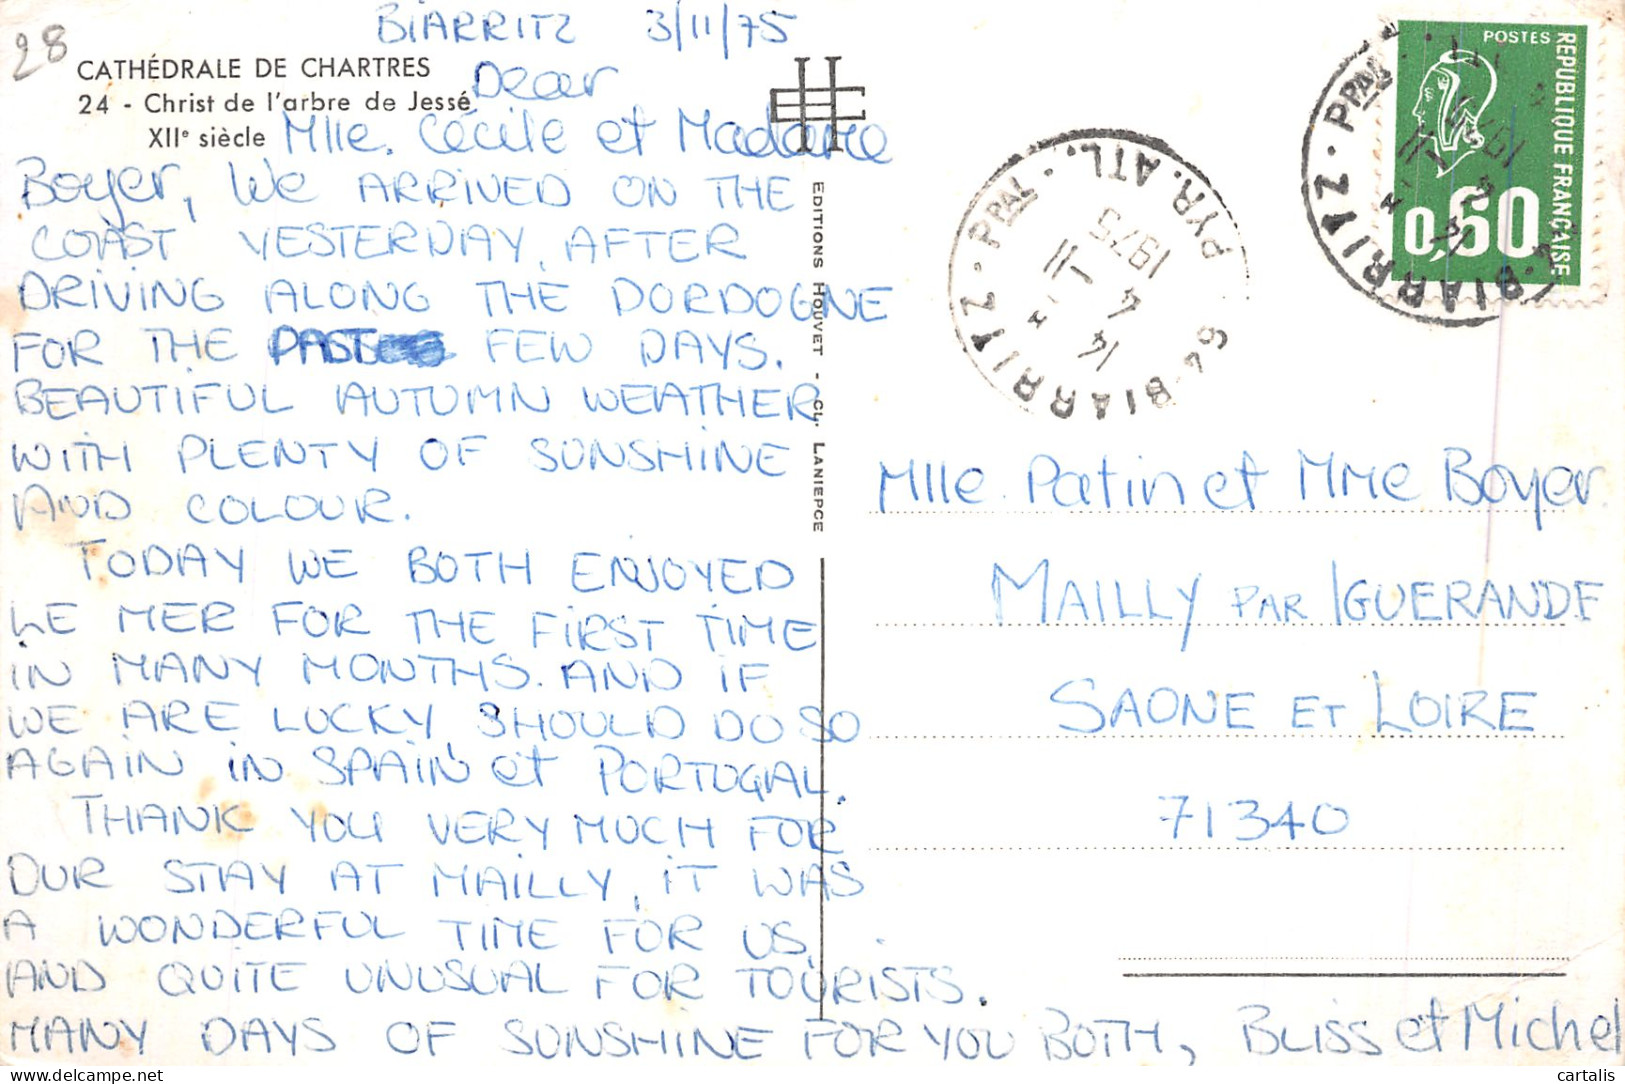 28
BIARRITZ 3/11/75
CATHÉDRALE DE CHARTRES
24 - Christ de l'arbre de Jessé
XIIe siècle
Dear
Mlle. Cécile et Madame
Boyer, We ARRIVED ON THE
COAST YESTERDAY, AFTER
DRIVING ALONG THE DORDOGNE
FOR THE PAST FEW DAYS.
BEAUTIFUL AUTUMN WEATHER
WITH PLENTY OF SUNSHINE
AND COLOUR.
TODAY WE BOTH ENJOYED
LE MER FOR THE FIRST TIME
IN MANY MONTHS. AND IF
WE ARE LUCKY SHOULD DO SO
AGAIN IN SPAIN et PORTUGAL.
THANK YOU VERY MUCH FOR
OUR STAY AT MAILLY, IT WAS
A WONDERFUL TIME FOR US.
AND QUITE UNUSUAL FOR TOURISTS.
MANY DAYS OF SUNSHINE FOR YOU BOTH, BLISS et Michel
EDITIONS HOUVET - CL. LANIEPCE
POSTES
REPUBLIQUE FRANÇAISE
0,60
BIARRITZ · PPAL
64 · BIARRITZ · PPAL · PYR. ATL.
14 H
4 - 11
1975
Mlle. Patin et Mme Boyer
MAILLY PAR IGUERANDE
SAONE ET LOIRE
71340
cartalis